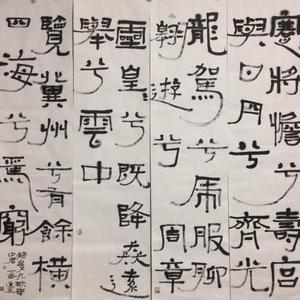 蹇將憺兮壽宮
與日月兮齊光
龍駕兮帝服聊
翱遊周章
靈皇兮既降猋遠
舉兮雲中
覽冀州兮有餘橫
四海兮焉窮